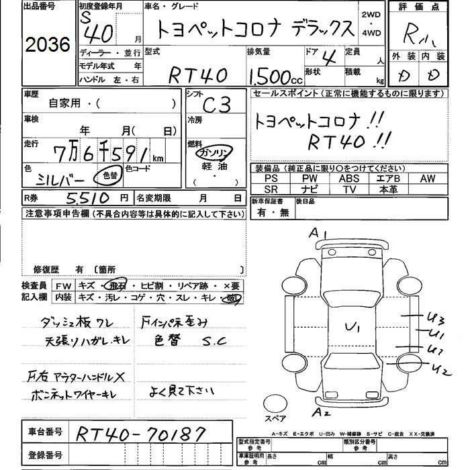 出品番号
2036
初度登録年月
S 40 年 月
ディーラー・並行
モデル年式 年
ハンドル 左・右
車名・グレード
トヨペットコロナ デラックス
2WD
・
4WD
型式
RT40
排気量
1,500cc
ドア
4
形状
定員
人
積載量
kg
評価点
外装 内装
D D
車歴
自家用・( )
車検
年 月( 日)
走行
7万6千591km
色
シルバー 色替
色コード
R券 5,510円
名変期限 月 日
シフト
C3
冷房
燃料
ガソリン
軽油
・
セールスポイント(正常に機能するものに限ります)
トヨペットコロナ!!
RT40!!
装備品(純正品に限り○をつけてください)
PS PW ABS エアB AW
SR ナビ TV 本革
新車保証書
有・無
後日品
注意事項申告欄(不具合内容等は具体的に記入して下さい)
修復歴 有 〔箇所 〕
検査員
記入欄
FW キズ・飛石・ヒビ割・リペア跡・×要
内装 キズ・汚レ・コゲ・穴・スレ・キレ・
ダッシュ板ワレ Fインパネ歪み
天張りハガレ、キレ 色替 S.C
F右アウターハンドル×
ボンネットワイヤーキレ よく見て下さい
車台番号 RT40-70187
A1
U3
U1
U1
U2
U2
スペア
A2
A-キズ E-エクボ U-凹み W-補修跡 S-サビ C-腐食 X X-交換済
型式指定番号
類別区分番号
車庫証明用
長さ cm 幅 cm 高さ cm